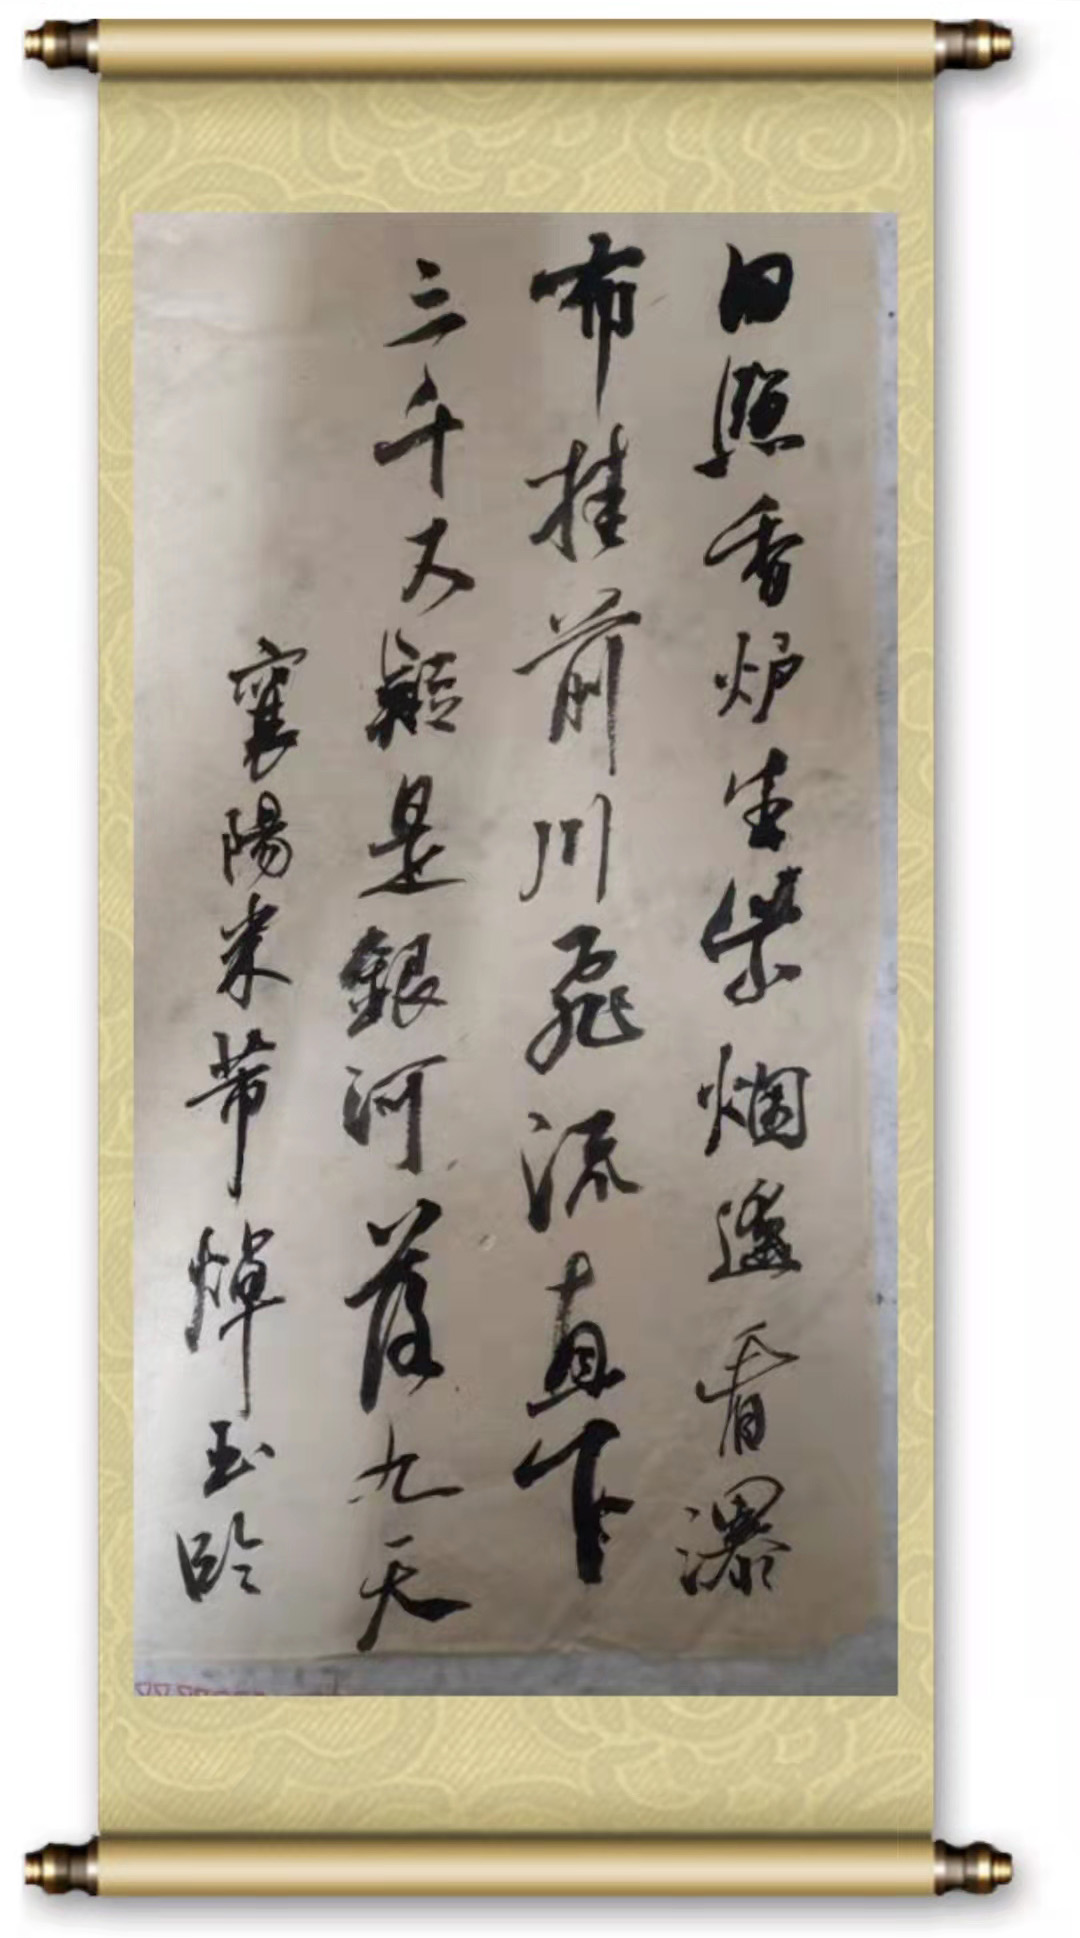 日照香炉生紫烟遙看瀑
布挂前川飛流直下
三千尺疑是銀河落九天
襄陽米芾焯玉臨